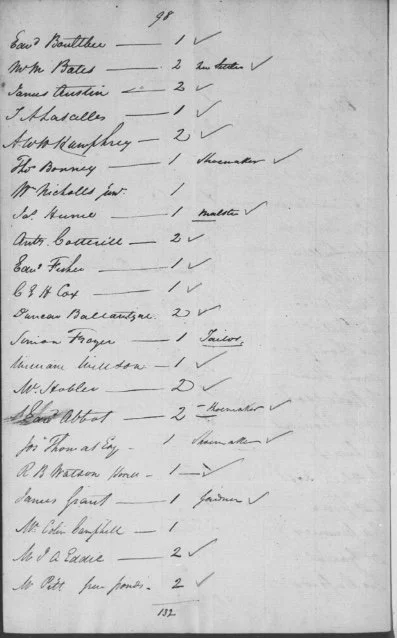 98
Edwd Boultbee — 1 ✓
Wm Bates — 2 ✓
James Austin — 2 ✓
T A Lascelles — 1 ✓
A W H Humphrey — 2 ✓
Thos Bonney — 1 Shoemaker ✓
Wm Nicholls Junr 1
Jas Hume — 1 Malster ✓
Anty Cotterill — 2 ✓
Edwd Fisher — 1 ✓
C & H Cox — 1 ✓
Duncan Ballantyne. 2 ✓
Simon Frazer — 1 Tailor.
William Willson — 1 ✓
Mr Stobler — 2 ✓
Edwd Abbot — 2 — Shoemaker ✓
Jos Thomas Esq — 1 Shoemaker ✓
R B Watson — 1 — ✓
James Grant — 1 Gardner ✓
Mr Colin Campbell — 1
Mr J A Eddie — 2 ✓
Mr Pitt ponds — 2 ✓
132